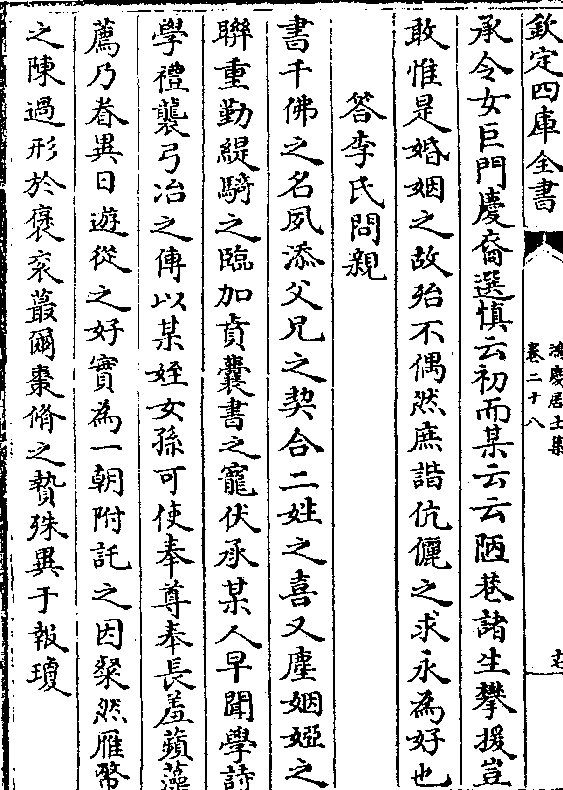 欽定四庫全書
鴻慶居士集
卷二十八
承令女巨門慶裔選慎云初而某云云陋巷諸生攀援豈
敢惟是婚姻之故殆不偶然庶諧伉儷之求永為好也
答李氏問親
書千佛之名夙添父兄之契合二姓之喜又塵姻婭之
聯重勤緹騎之臨加賁囊書之寵伏承某人早聞學詩
學禮襲弓冶之傳以某姪女孫可使奉尊奉長羞蘋藻
薦乃眷異日遊從之好實為一朝附託之因粲然雁幣
之陳過形於褒衮蕞爾棗脩之贄殊異于報瓊